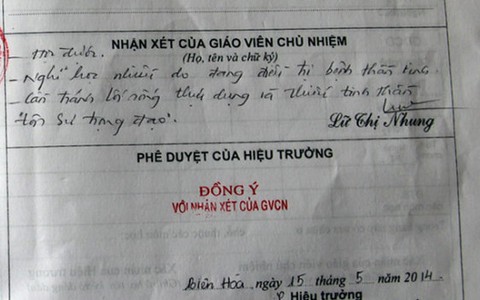 NHẬN XÉT CỦA GIÁO VIÊN CHỦ NHIỆM
(Họ, tên và chữ ký)
- Nghỉ học nhiều do đang điều trị bệnh thần kinh.
- Cần tránh lối sống thực dụng và thiếu tinh thần
"tôn sư trọng đạo".
Lữ Thị Nhung
PHÊ DUYỆT CỦA HIỆU TRƯỞNG
ĐỒNG Ý
VỚI NHẬN XÉT CỦA GVCN
Biên Hòa, ngày 15 tháng 5 năm 2014.
Hiệu trưởng